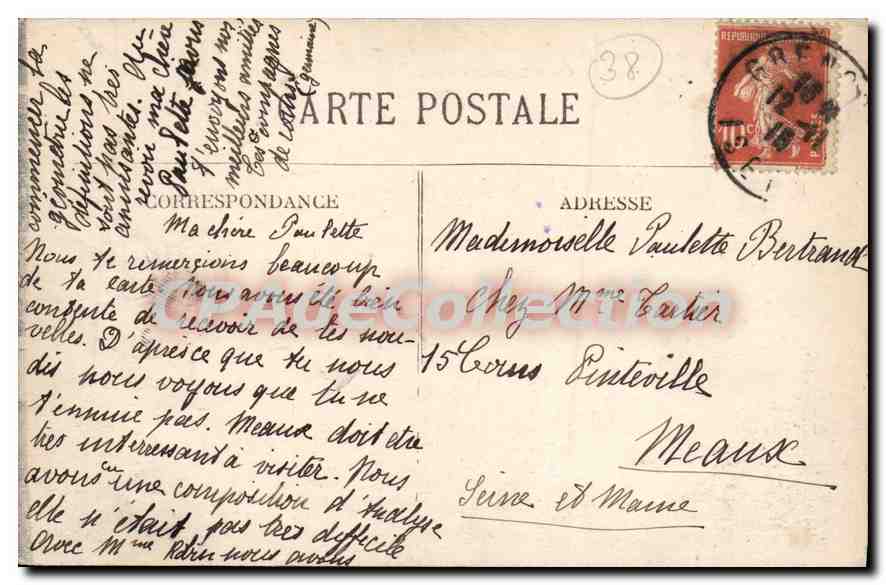 38
CARTE POSTALE
CORRESPONDANCE
ADRESSE
REPUBLIQUE
10c
POSTES
GRENOBLE
ISERE
Ma chère Paulette
Nous te remerçions beaucoup
de ta carte. Nous avons été bien
contente de recevoir de tes nou-
velles. D'après ce que tu nous
dis nous voyons que tu ne
t'ennuie pas. Meaux doit être
très interressant à visiter. Nous
avons eu une composition d'Analyse
elle n'était pas très difficile
Avec Mme nous avons
commencer la
géométrie les
définitions ne
sont pas très
amusantes. Au-
revoir ma chère
Paulette nous
t'envoyons nos
meilleurs amitiés
Tes compagnes
de cours
(germaine)
Mademoiselle Paulette Bertrand
Chez Mme
15 Cours Pinteville
Meaux
Seine et Marne
CPAdeCollection